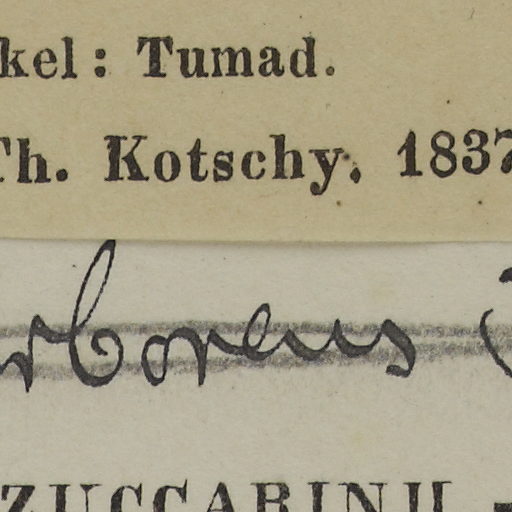 kel: Tumad.
Th. Kotschy. 1837
rboreus
ZUCCARINII -